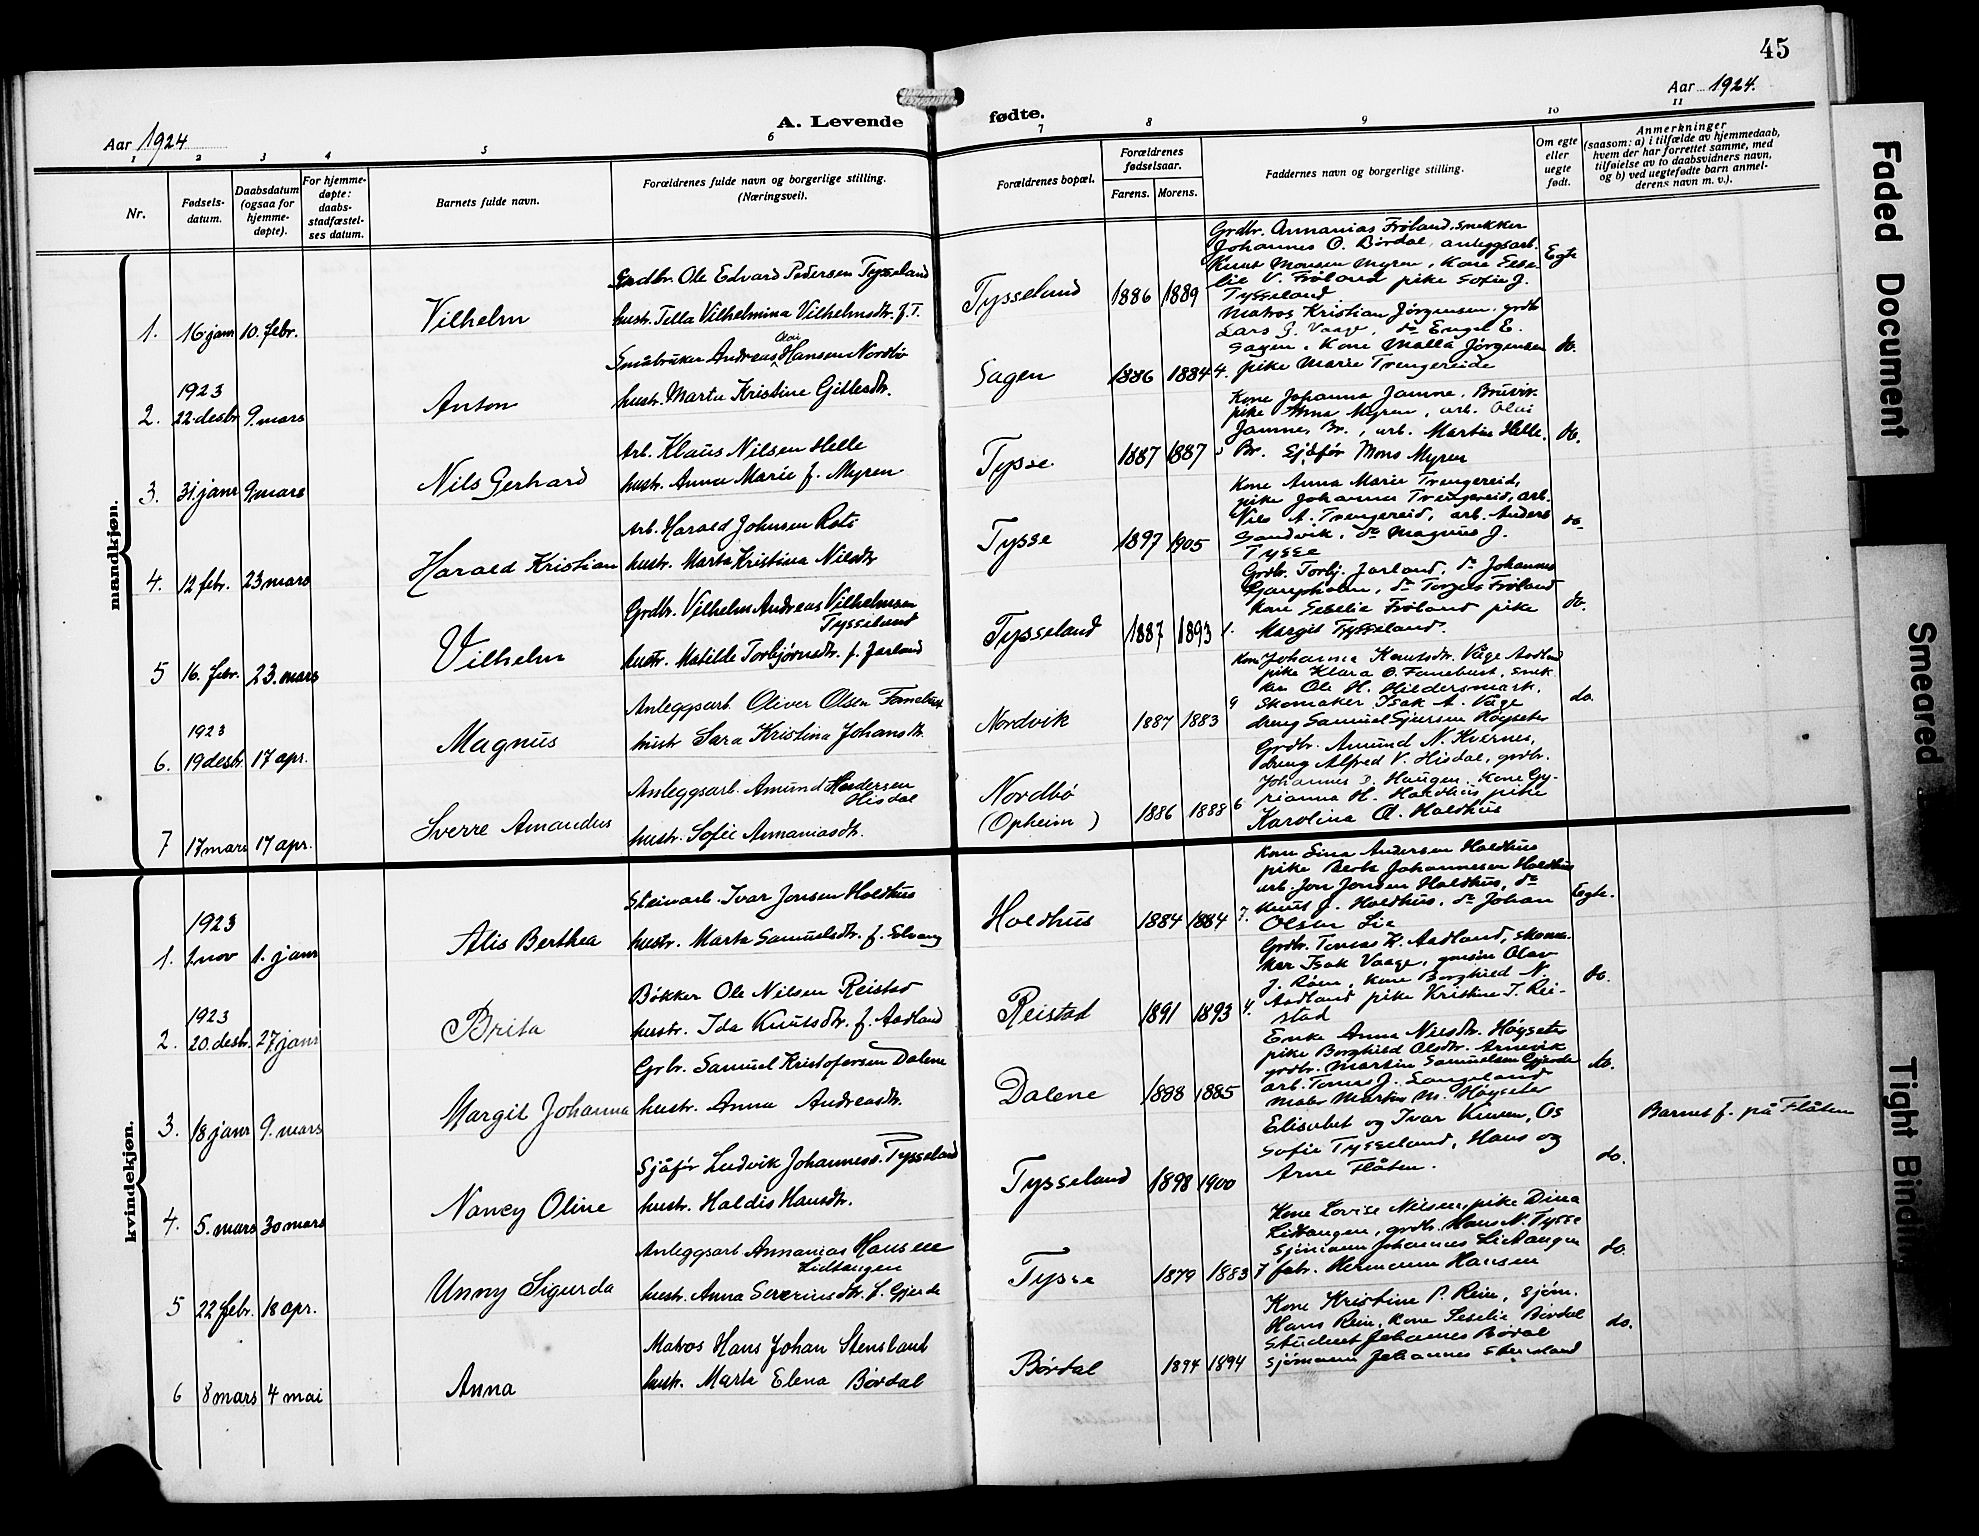 45
Aar 1924
A. Levende fødte.
Aar 1924.
1 2 3 4 5 6 7 8 9 10 11
Nr.
Fødsels-
datum.
Daabsdatum
(ogsaa for
hjemme-
døpte).
For hjemme-
døpte:
daabs-
stadfæstel-
ses datum.
Barnets fulde navn.
Forældrenes fulde navn og borgerlige stilling.
(Næringsvei).
Forældrenes bopæl.
Forældrenes
fødselsaar.
Farens. Morens.
Faddernes navn og borgerlige stilling.
Om egte
eller
uegte
født.
Anmerkninger
(saasom: a) i tilfælde av hjemmedaab,
hvem der har forrettet samme, med
tilføielse av to daabsvidners navn,
og b) ved uegtefødte barn anmel-
derens navn m. v.).
mandkjøn.
1. 16 janr 10. febr.
Vilhelm
Grdbr. Ole Edvard Pedersen Tysseland
hustr. Tella Vilhelmina Vilhelmsdtr. f. T.
Tysseland 1886 1889
Grdbr. Annanias Frøland, snekker
Johannes O. Børdal, anleggsarb.
Knut Monsen Myren, Kone Sese-
lie V. Frøland pike Sofie J.
Tysseland
Egte
2. 1923
22 desbr 9. mars
Anton
Småbruker Andreas Olai Hansen Nordbø
hustr. Marta Kristine Gillesdtr.
Sagen 1886 1884 4.
Matros Kristian Jørgensen, grdb
Lars J. Vaage, do Engel E.
Sagen, Kone Malla Jørgensen
pike Marie Trengereide
do.
3. 31. janr 9 mars
Nils Gerhard
Arb. Klaus Nilsen Helle
hustr. Anna Marie f. Myren
Tysse 1887 1887
Kone Johanna Jamne, Bruvik
pike Anna Myren, arb. Olai
Jamne, Br., arb. Martin Helle,
Br. Sjåfør Mons Myren
do.
4. 12 febr. 23 mars
Harald Kristian
Arb. Harald Johnsen Roti
hustr. Marta Kristina Nilsdtr
Tysse 1897 1905
Kone Anna Marie Trengereid,
pike Johanna Trengereid, arb.
Nils A. Trengereid, arb. Anders
Sandvik, do Magnus J.
Tysse
do.
5 16. febr. 23. mars
Vilhelm
Grdbr. Vilhelm Andreas Vilhelmsen
Tysseland
hustr. Matilde Torbjørnsdtr. f. Jarland
Tysseland 1887 1893 1.
Grdbr. Torbj. Jarland, do Johannes
Garepholm, do Torgels Frøland
Kone Seselie Frøland pike
Margit Tysseland.
do.
6. 1923
19 desbr. 17 apr.
Magnus
Anleggsarb. Oliver Olsen Fonnebust
hustr Sara Kristina Johansdtr.
Nordvik 1887 1883 9
Kone Johanna Knutsdtr. Våge Aadland
pike Klara O. Fonnebust, snek-
ker Ole H. Hildersmark,
Skomaker Isak A. Våge
dreng Samuel Gjersen Høyseter
do.
7 17 mars 17 apr.
Sverre Amandus
Anleggsarb. Amund Hendersen
Hisdal
hustr. Sofie Annaniasdtr.
Nordbø
(Opheim) 1886 1888 6
Grdbr. Amund N. Kvernes,
dreng Alfred V. Hisdal, grdbr.
Johannes D. Haugen, Kone Gy-
rianna H. Holdhus pike
Karolina A. Holdhus
kvindekjøn.
1. 1923
1. nov 1. janr
Alis Berthea
Steinarb. Ivar Jonsen Holdhus
hustr. Marta Samuelsdtr. f. Solvang
Holdhus 1884 1884 7.
Kone Sina Andersen Holdhus
pike Berta Johannesen Holdhus
arb. Jon Jonsen Holdhus, do
Knut J. Holdhus, do Johan
Olsen Lie
Egte.
2. 1923
20. desbr. 27. janr
Brita
Bøkker Ole Nilsen Reistad
hustr. Ida Knutsdtr. f. Aadland
Reistad 1891 1893 4.
Grdbr. Tomas K. Aadland, skoma-
ker Isak Vaage, Olav
J. Røen, Kone Borghild N.
Aadland pike Kristine T. Rei-
stad
do.
3. 18 janr 9. mars
Margit Johanna
Grbr. Samuel Kristofersen Dalene
hustr. Anna Andreasdtr.
Dalene 1888 1885
Enke Anna Nilsdtr. Høyseter
pike Borghild Olsdtr. Arnevik
grdbr. Martin Samuelsen Gjerde
arb. Tomas J. Langeland
maler Martin M. Høyseter
do.
4. 5. mars 30 mars
Nancy Oline
Sjåfør Ludvik Johanness. Tysseland
hustr. Haldis Hansdtr.
Tysseland 1898 1900
Elisabet og Ivar Kuven, Os
Sofie Tysseland, Hans og
Arne Flåten.
do.
Barnet f. på Flåten
5 22 febr. 18 apr.
Unny Sigurda
Anleggsarb Annanias Hansen
Lidtangen
hustr. Anna Severinsdtr. f. Gjerde
Tysse 1879 1883 7
Kone Lovise Nilsen, pike Dina
Lidtangen, grdb. Hans N. Tysse
Sjømann Johannes Lidtangen
fabr. Hermann Hansen
do.
6 8 mars 4 mai
Anna
Matros Hans Johan Stensland
hustr. Marta Elena Børdal
Børdal 1894 1894
Kone Kristine P. Rein, sjøm.
Hans Rein, Kone Seselie Børdal
Student Johannes Børdal
Sjømann Johannes Stensland
do.
Faded Document
Smeared
Tight Bindin